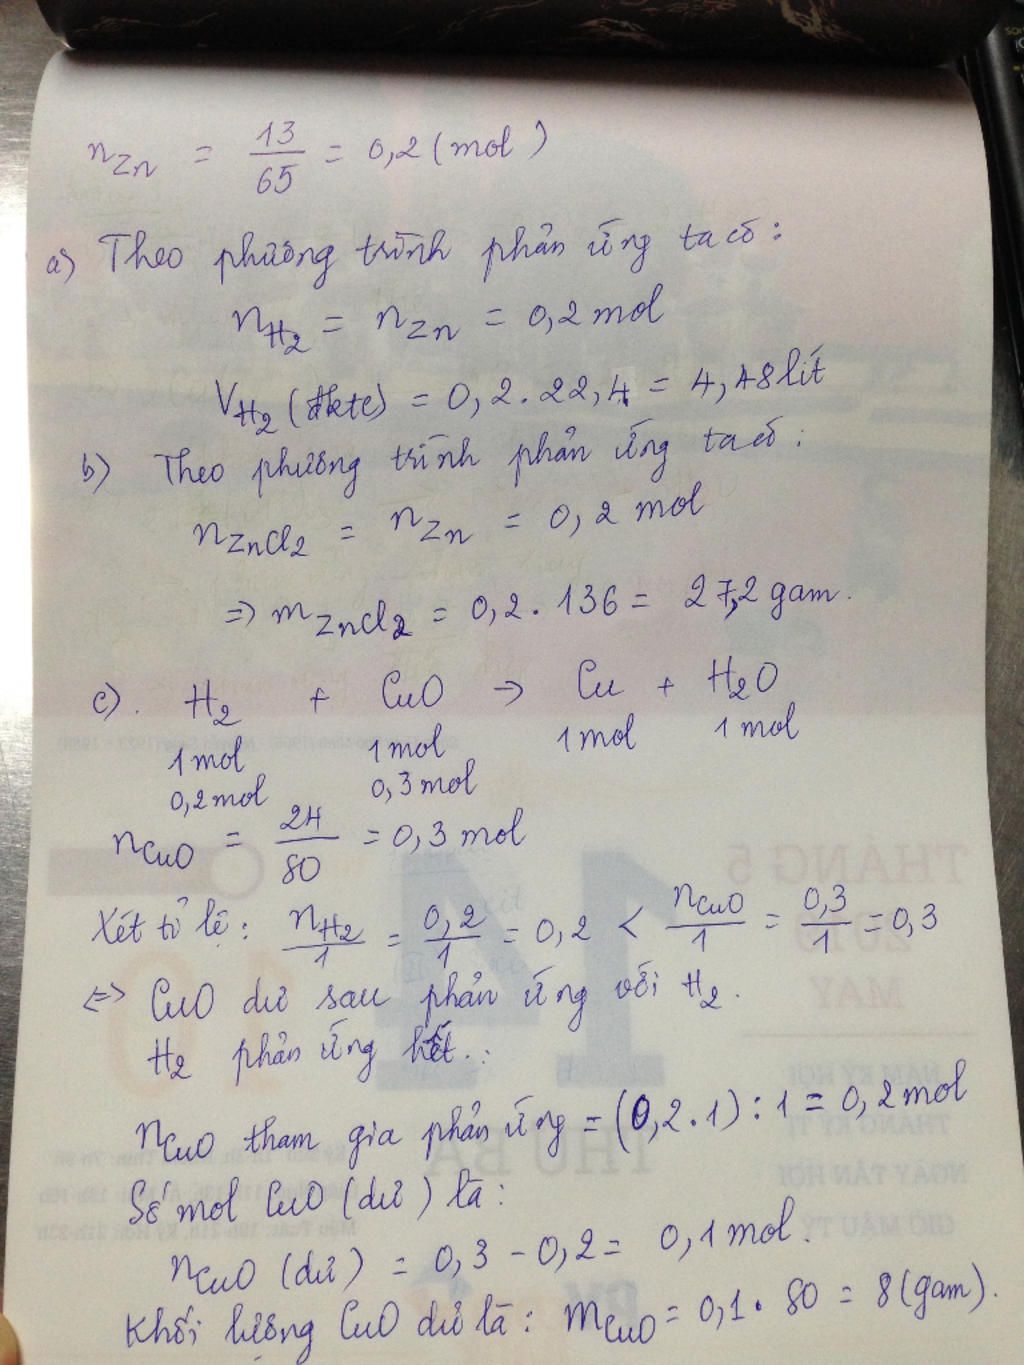 n_Zn = 13/65 = 0,2 (mol)
a) Theo phương trình phản ứng ta có:
n_H2 = n_Zn = 0,2 mol
V_H2 (đktc) = 0,2 . 22,4 = 4,48 lít
b) Theo phương trình phản ứng ta có:
n_ZnCl2 = n_Zn = 0,2 mol
=> m_ZnCl2 = 0,2 . 136 = 27,2 gam.
c). H2 + CuO → Cu + H2O
1 mol 1 mol 1 mol 1 mol
0,2 mol 0,3 mol
n_CuO = 24/80 = 0,3 mol
Xét tỉ lệ: n_H2/1 = 0,2/1 = 0,2 < n_CuO/1 = 0,3/1 = 0,3
<=> CuO dư sau phản ứng với H2.
H2 phản ứng hết.:
n_CuO tham gia phản ứng = (0,2 . 1) : 1 = 0,2 mol
Số mol CuO (dư) là:
n_CuO (dư) = 0,3 - 0,2 = 0,1 mol.
Khối lượng CuO dư là: m_CuO = 0,1 . 80 = 8 (gam).
THÁNG 5
MAY
14
THỨ BA
NĂM KỶ HỢI
THÁNG KỶ TỊ
NGÀY TÂN HỢI
GIỜ MẬU TÝ